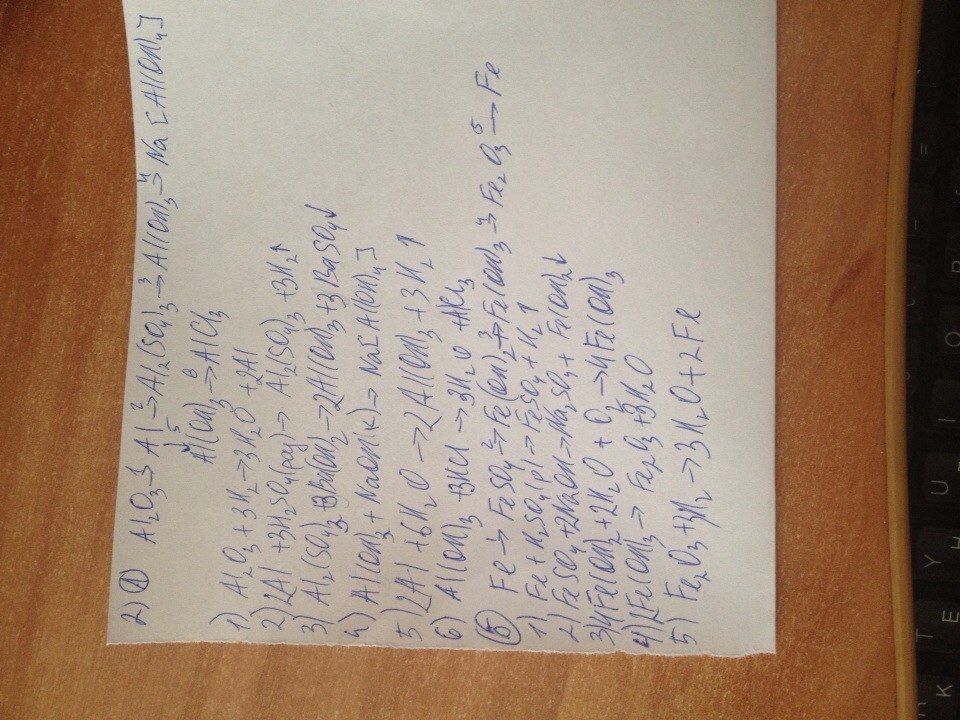 2) А Al₂O₃ →¹ Al →² Al₂(SO₄)₃ →³ Al(OH)₃ →⁴ Na[Al(OH)₄]
↓⁵
Al(OH)₃ →⁶ AlCl₃
1) Al₂O₃ + 3H₂ → 3H₂O + 2Al
2) 2Al + 3H₂SO₄(раз) → Al₂(SO₄)₃ + 3H₂↑
3) Al₂(SO₄)₃ + 3Ba(OH)₂ → 2Al(OH)₃ + 3BaSO₄↓
4) Al(OH)₃ + NaOH(к) → Na[Al(OH)₄]
5) 2Al + 6H₂O → 2Al(OH)₃ + 3H₂↑
6) Al(OH)₃ + 3HCl → 3H₂O + AlCl₃
Б Fe →¹ FeSO₄ →² Fe(OH)₂ →³ Fe(OH)₃ →⁴ Fe₂O₃ →⁵ Fe
1) Fe + H₂SO₄(р) → FeSO₄ + H₂↑
2) FeSO₄ + 2NaOH → Na₂SO₄ + Fe(OH)₂↓
3) 4Fe(OH)₂ + 2H₂O + O₂ → 4Fe(OH)₃
4) 2Fe(OH)₃ → Fe₂O₃ + 3H₂O
5) Fe₂O₃ + 3H₂ → 3H₂O + 2Fe
K T
E Y U I O
H